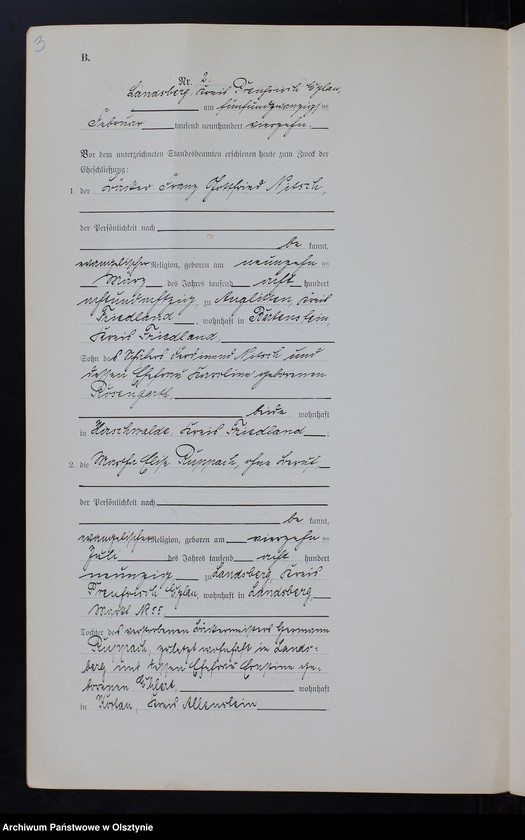 3
B.
Nr. 2.
Landsberg, Kreis Preußisch Eylau,
am fünfundzwanzigsten
Februar tausend neunhundert vierzehn.
Vor dem unterzeichneten Standesbeamten erschienen heute zum Zweck der
Eheschließung:
1. der Bäcker Franz Gottfried Nitsch,
der Persönlichkeit nach
be kannt,
evangelischer Religion, geboren am neunzehnten
März des Jahres tausend acht hundert
achtundachtzig, zu Anglitten, Kreis
Friedland, wohnhaft in Bartenstein,
Kreis Friedland,
Sohn des Ferdinand Nitsch und
dessen Ehefrau Karoline geborenen
Rosengarth,
beide wohnhaft
in Hirschwalde, Kreis Friedland;
2. die Martha Elise Ruppach, ohne Beruf,
der Persönlichkeit nach
be kannt,
evangelischer Religion, geboren am vierzehnten
Juli des Jahres tausend acht hundert
neunzig zu Landsberg, Kreis
Preußisch Eylau, wohnhaft in Landsberg,
Markt No 55
Tochter des verstorbenen Bäckermeisters Hermann
Ruppach, zuletzt wohnhaft in Lands-
berg und dessen Ehefrau Ernstine ge-
borenen wohnhaft
in Kreis Allenstein
Archiwum Państwowe w Olsztynie